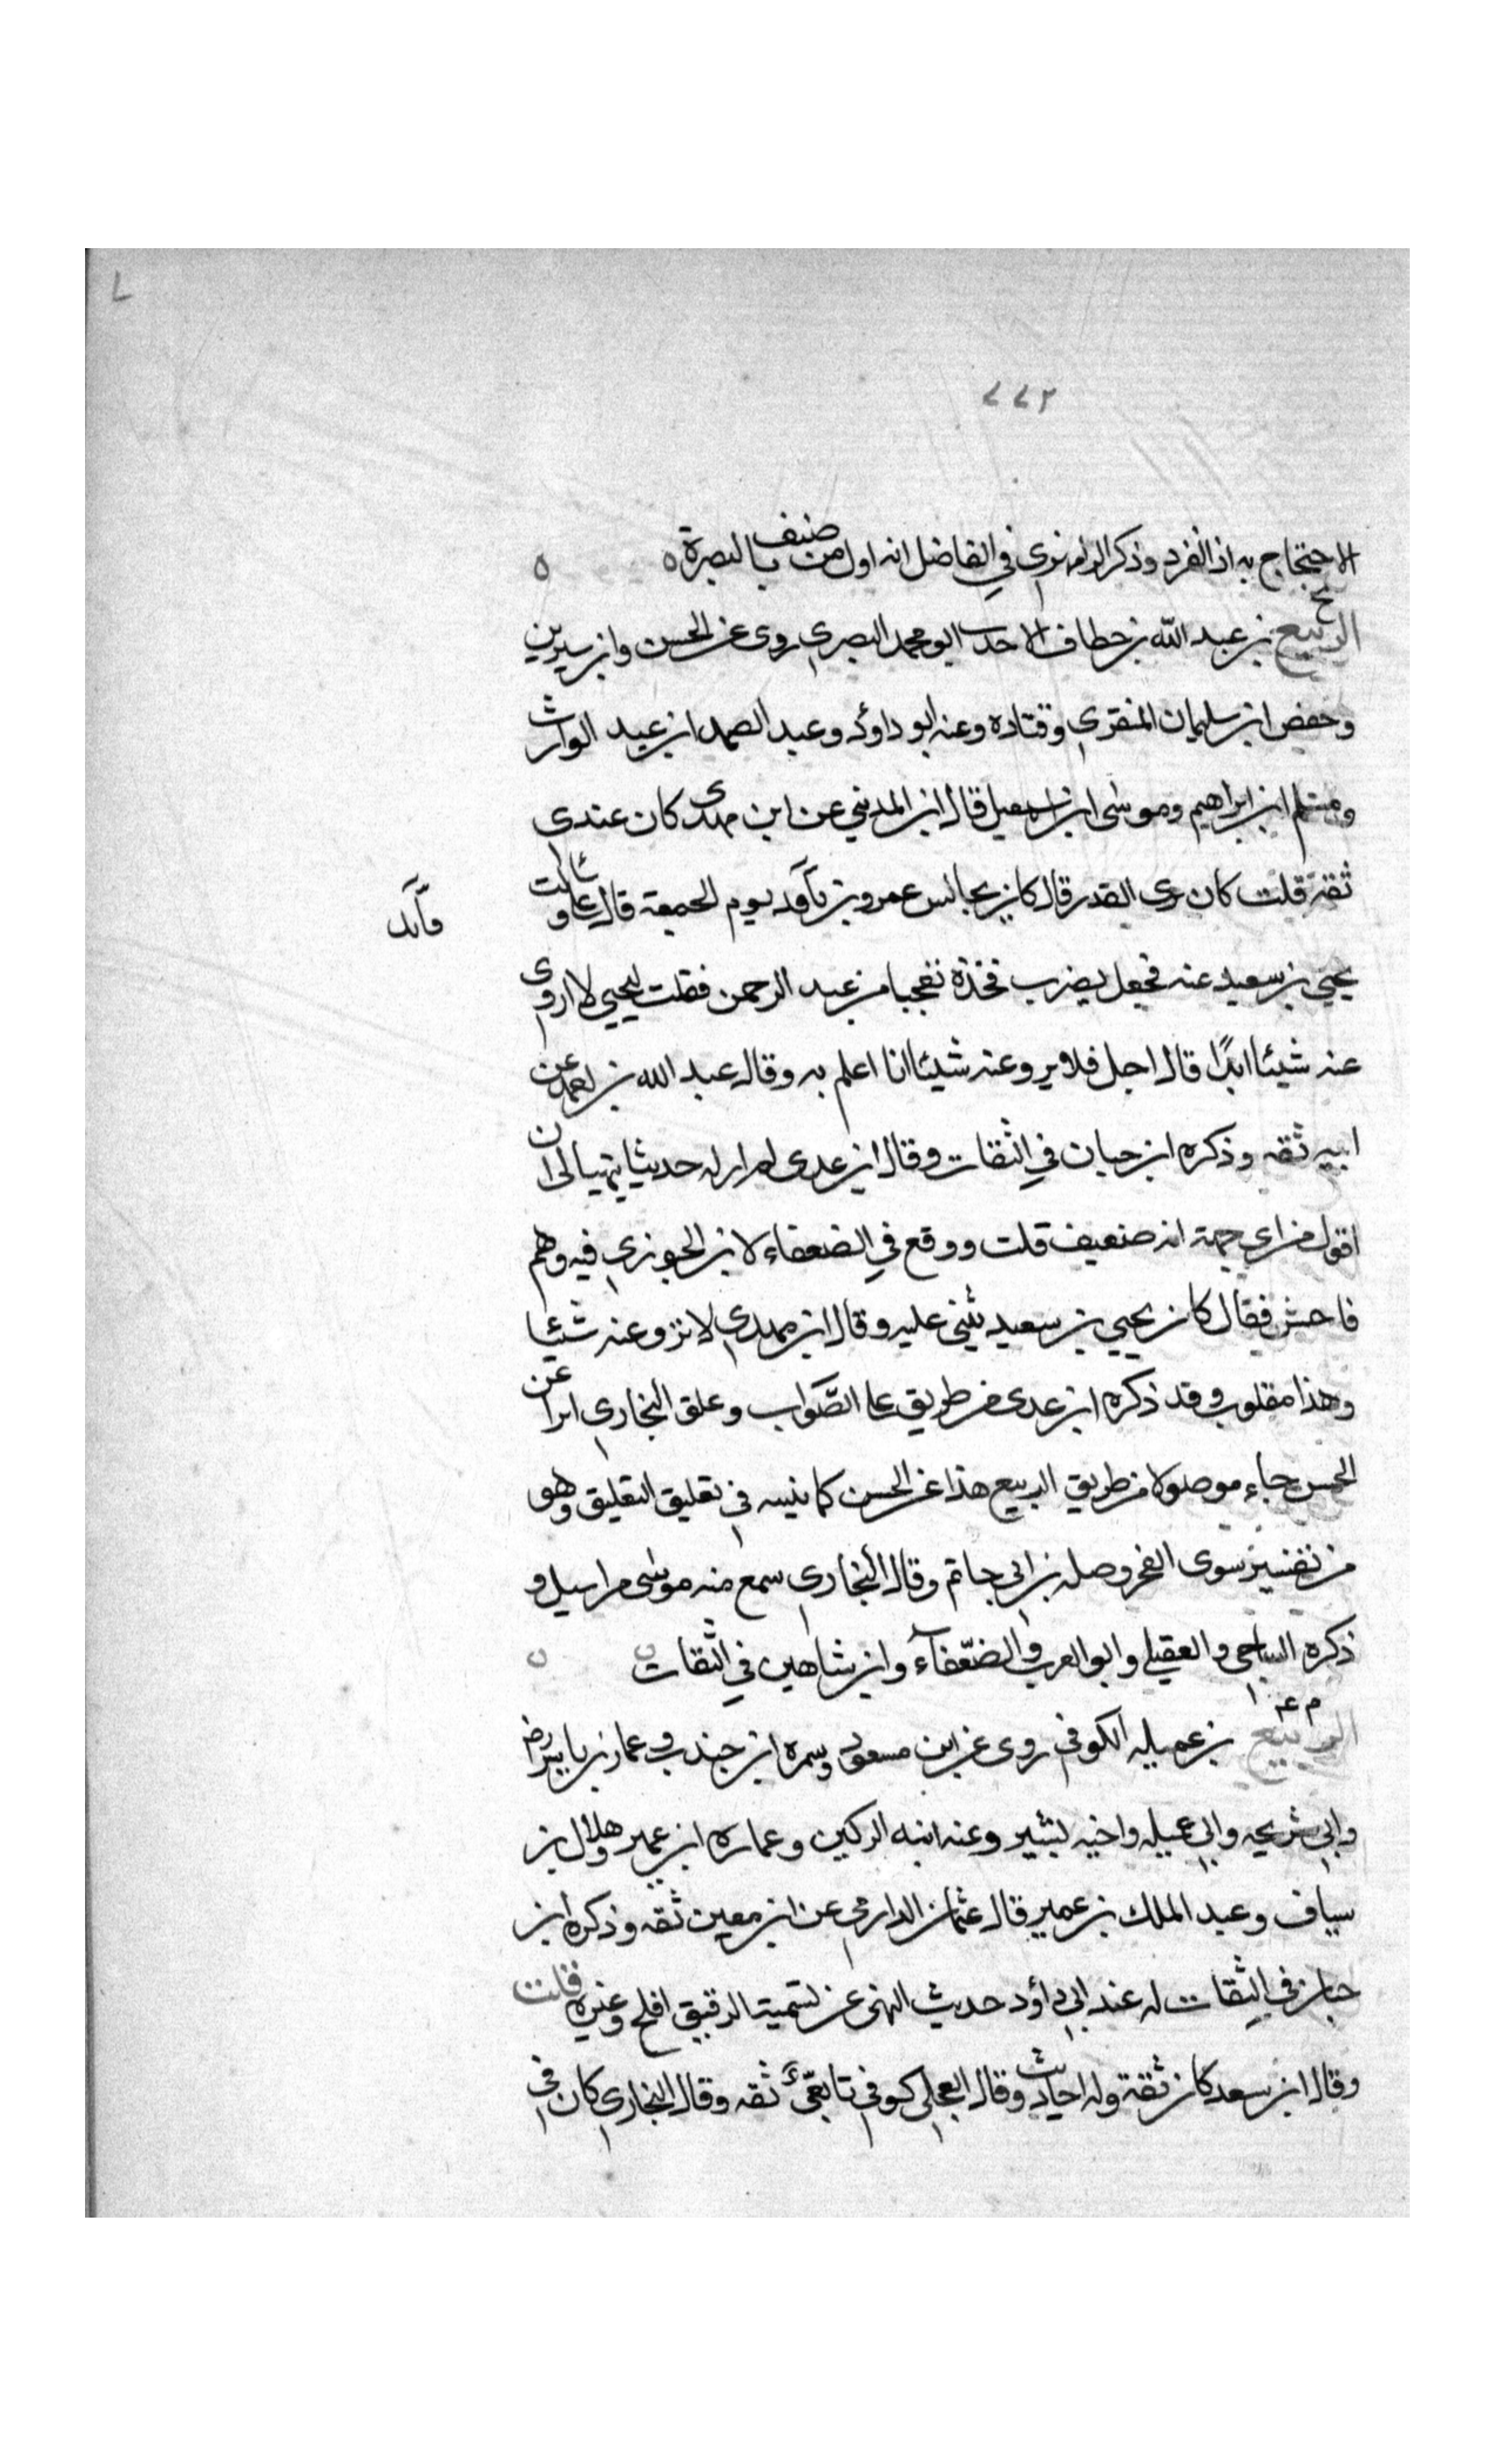 ٧
٢٧٧
الاحتجاج به اذا انفرد وذكر الرامهرمزي في الفاضل انه اول من صنف بالبصرة ه ه
خ
الربيع بن عبد الله بن خطاف الاحدب ابو محمد البصري روى عن الحسن وابن سيرين
وحفص ابن سليمان المنقري وقتاده وعنه ابو داؤد وعبد الصمد ابن عبد الوارث
ومسلم ابن ابراهيم وموسى ابن اسمعيل قال ابن المديني عن ابن مهدي كان عندي
ثقة قلت كان يرى القدر قال كان يجالس عمرو بن فآئد يوم الجمعة قال علي وسالت
فآئد
يحيى بن سعيد عنه فجعل يضرب فخذه تعجبا من عبد الرحمن فقلت ليحيى لا اروي
عنه شيئا ابدًا قال اجل فلا يرو عنه شيئا انا اعلم به وقال عبد الله بن احمد عن
ابيه ثقه وذكره ابن حبان في الثقات وقال ابن عدى لم ار له حديثا يتهيا لى ان
اقول من اي جهة انه ضعيف قلت ووقع في الضعفاء لابن الجوزي فيه وهم
فاحش فقال كان يحيى بن سعيد يثني عليه وقال ابن مهدي لا ترو عنه شيئا
وهذا مقلوب وقد ذكره ابن عدى من طريق على الصَّواب وعلق البخاري اثرا عن
الحسن جاء موصولا من طريق الربيع هذا عن الحسن كما نبيه في تعليق التعليق وهو
من تفسير سوى الفجر وصله بن ابى حاتم وقال البخاري سمع منه موسى مراسيل و
ذكره الساجى و العقيلي وابو العرب في الضعّفآء وابن شاهين في الثقات ن ن
م عه ا
الربيع بن عميله الكوفي روى عن ابن مسعود وسمره ابن جندب وعمار بن ياسر رض
وابي سريحه وابي عميله واخيه يسير وعنه ابنه الركين وعماره ابن عمير وهلال بن
يساف وعبد الملك بن عمير قال عثمان الدارمي عن ابن معين ثقه وذكره ابن
حبان في الثقات له عند ابي داؤد حديث النهى عن تسمية الرقيق افلح وغيره قلت
وقال ابن سعد كان ثقة وله احاديث وقال العجلي كوفي تابعيّ ثقه وقال البخاري كان في